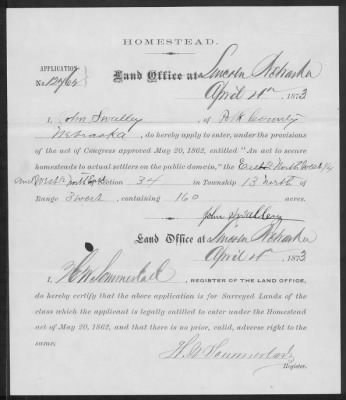 HOMESTEAD.
APPLICATION
No.
Land Office at Lincoln Nebraska
April 1873
I, John of Polk County
Nebraska, do hereby apply to enter, under the provisions
of the act of Congress approved May 20, 1862, entitled "An act to secure
homesteads to actual settlers on the public domain," the
and Section 34 in Township 13 North of
Range 3 west, containing 160 acres.
John
Land Office at Lincoln Nebraska
April 1873
I, , REGISTER OF THE LAND OFFICE,
do hereby certify that the above application is for Surveyed Lands of the
class which the applicant is legally entitled to enter under the Homestead
act of May 20, 1862, and that there is no prior, valid, adverse right to the
same.
Register.